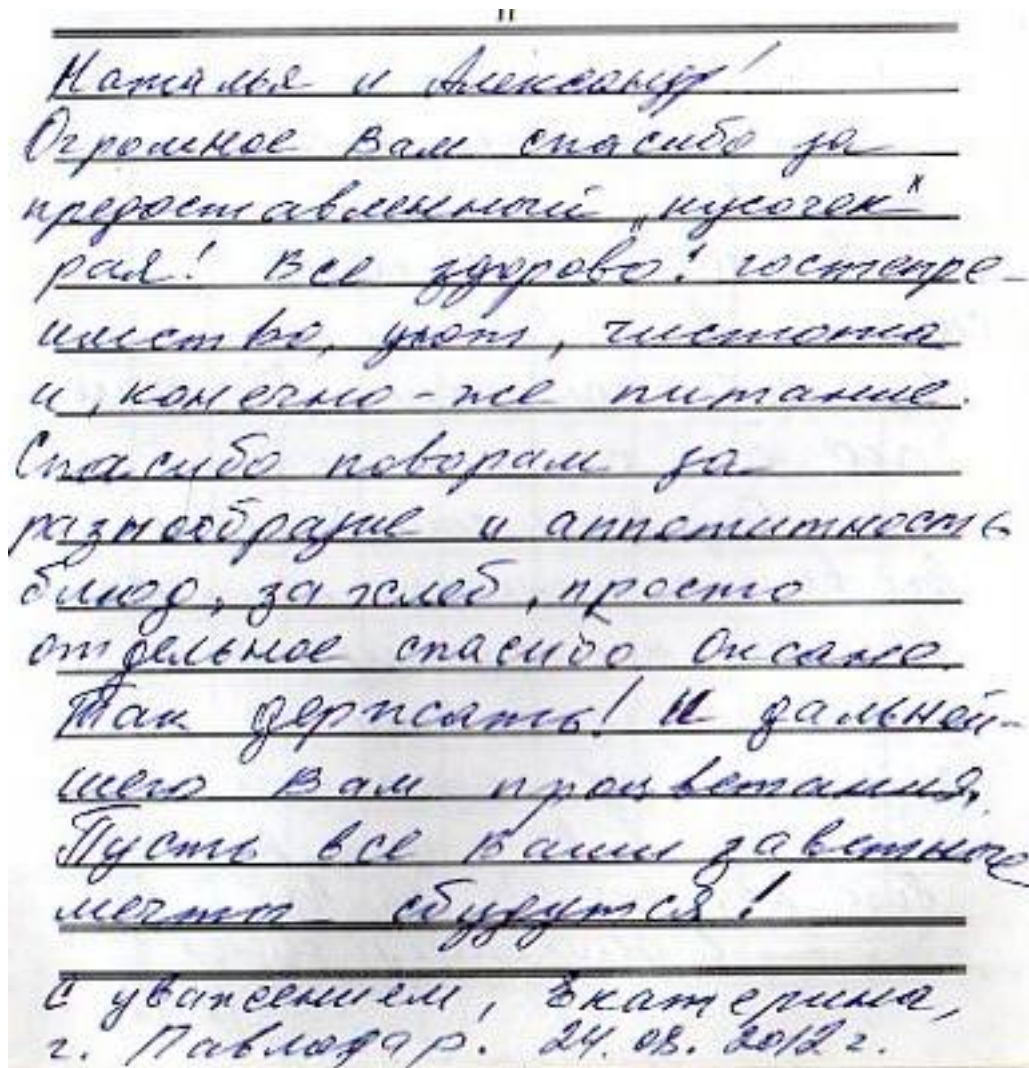 Наталья и Александр!
Огромное Вам спасибо за
предоставленный „кусочек"
рая! Все здорово: гостепре-
имство, уют, чистота
и, конечно-же питание.
Спасибо поворам за
разнообразие и аппетитность
блюд, за хлеб, просто
отдельное спасибо Оксане.
Так держать! И дальней-
шего Вам процветания,
Пусть все Ваши заветные
мечты сбудутся!
С уважением, Екатерина,
г. Павлодар. 24.08.2012 г.